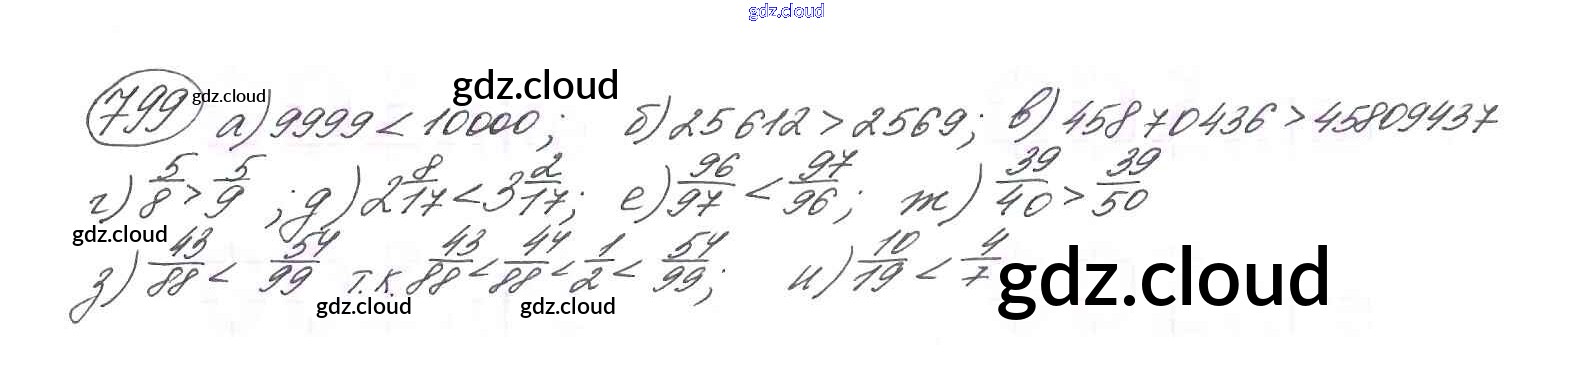 gdz.cloud
799 gdz.cloud а) 9999 < 10000; gdz.cloud б) 25612 > 2569; в) 45870436 > 45809437
г) 5/8 > 5/9; д) 2 8/17 < 3 2/17; е) 96/97 < 97/96; ж) 39/40 > 39/50
gdz.cloud
з) 43/88 < 54/99 т.к. 43/88 < 44/88 < 1/2 < 54/99; и) 10/19 < 4/7 gdz.cloud
gdz.cloud gdz.cloud